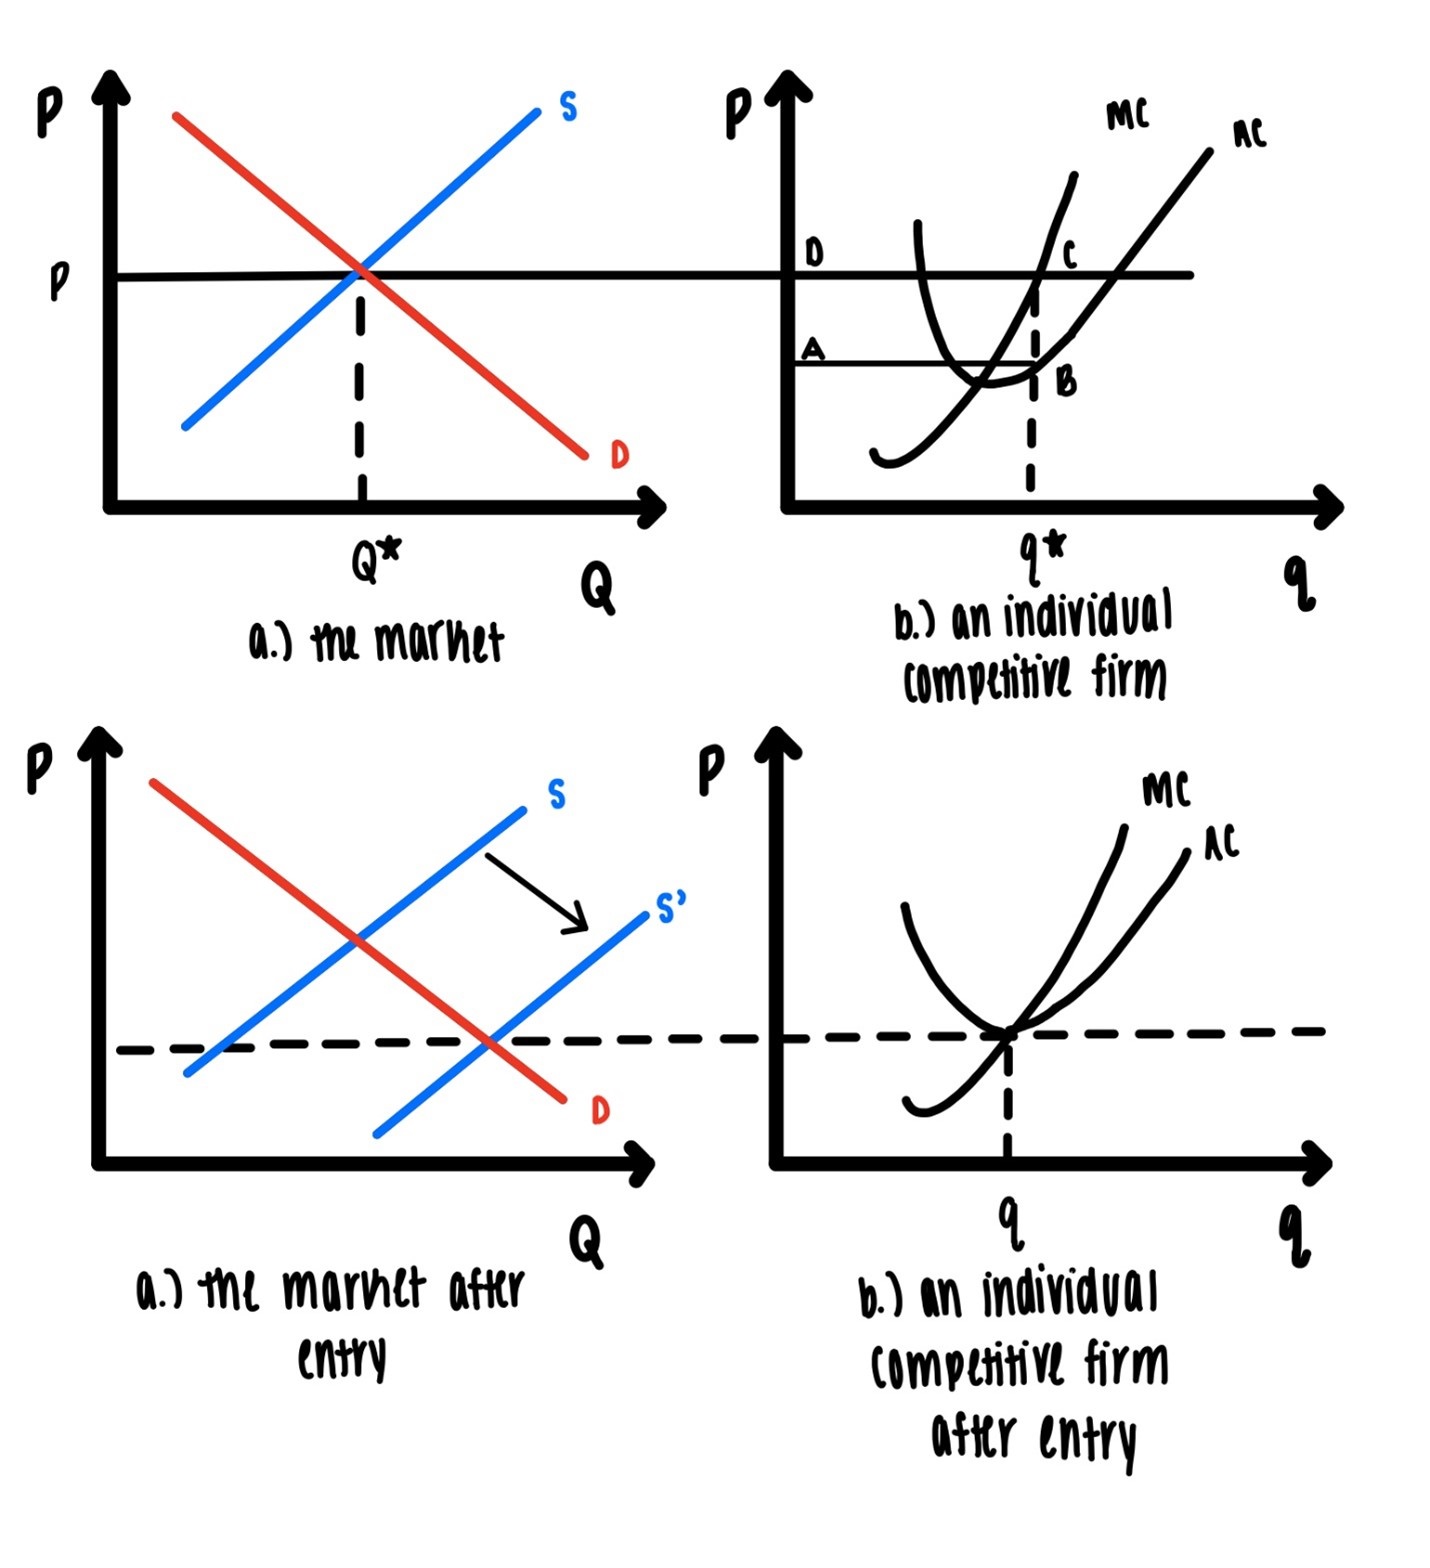 P
S
P
D
Q*
Q
a.) the market
P
MC
AC
D
C
A
B
q*
q
b.) an individual
competitive firm
P
S
S'
D
Q
a.) the market after
entry
P
MC
AC
q
q
b.) an individual
competitive firm
after entry